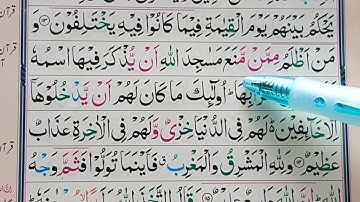 يَحْكُمُ بَيْنَهُمْ يَوْمَ الْقِيٰمَةِ فِيْمَا كَانُوْا فِيْهِ يَخْتَلِفُوْنَ
مَنْ اَظْلَمُ مِمَّنْ مَّنَعَ مَسٰجِدَ اللّٰهِ اَنْ يُّذْكَرَ فِيْهَا اسْمُهٗ
اُولٰٓئِكَ مَا كَانَ لَهُمْ اَنْ يَّدْخُلُوْهَاۤ
اِلَّا خَآئِفِيْنَ لَهُمْ فِى الدُّنْيَا خِزْىٌ وَّلَهُمْ فِى الْاٰخِرَةِ عَذَابٌ
عَظِيْمٌ وَلِلّٰهِ الْمَشْرِقُ وَالْمَغْرِبُ فَاَيْنَمَا تُوَلُّوْا فَثَمَّ وَجْهُ